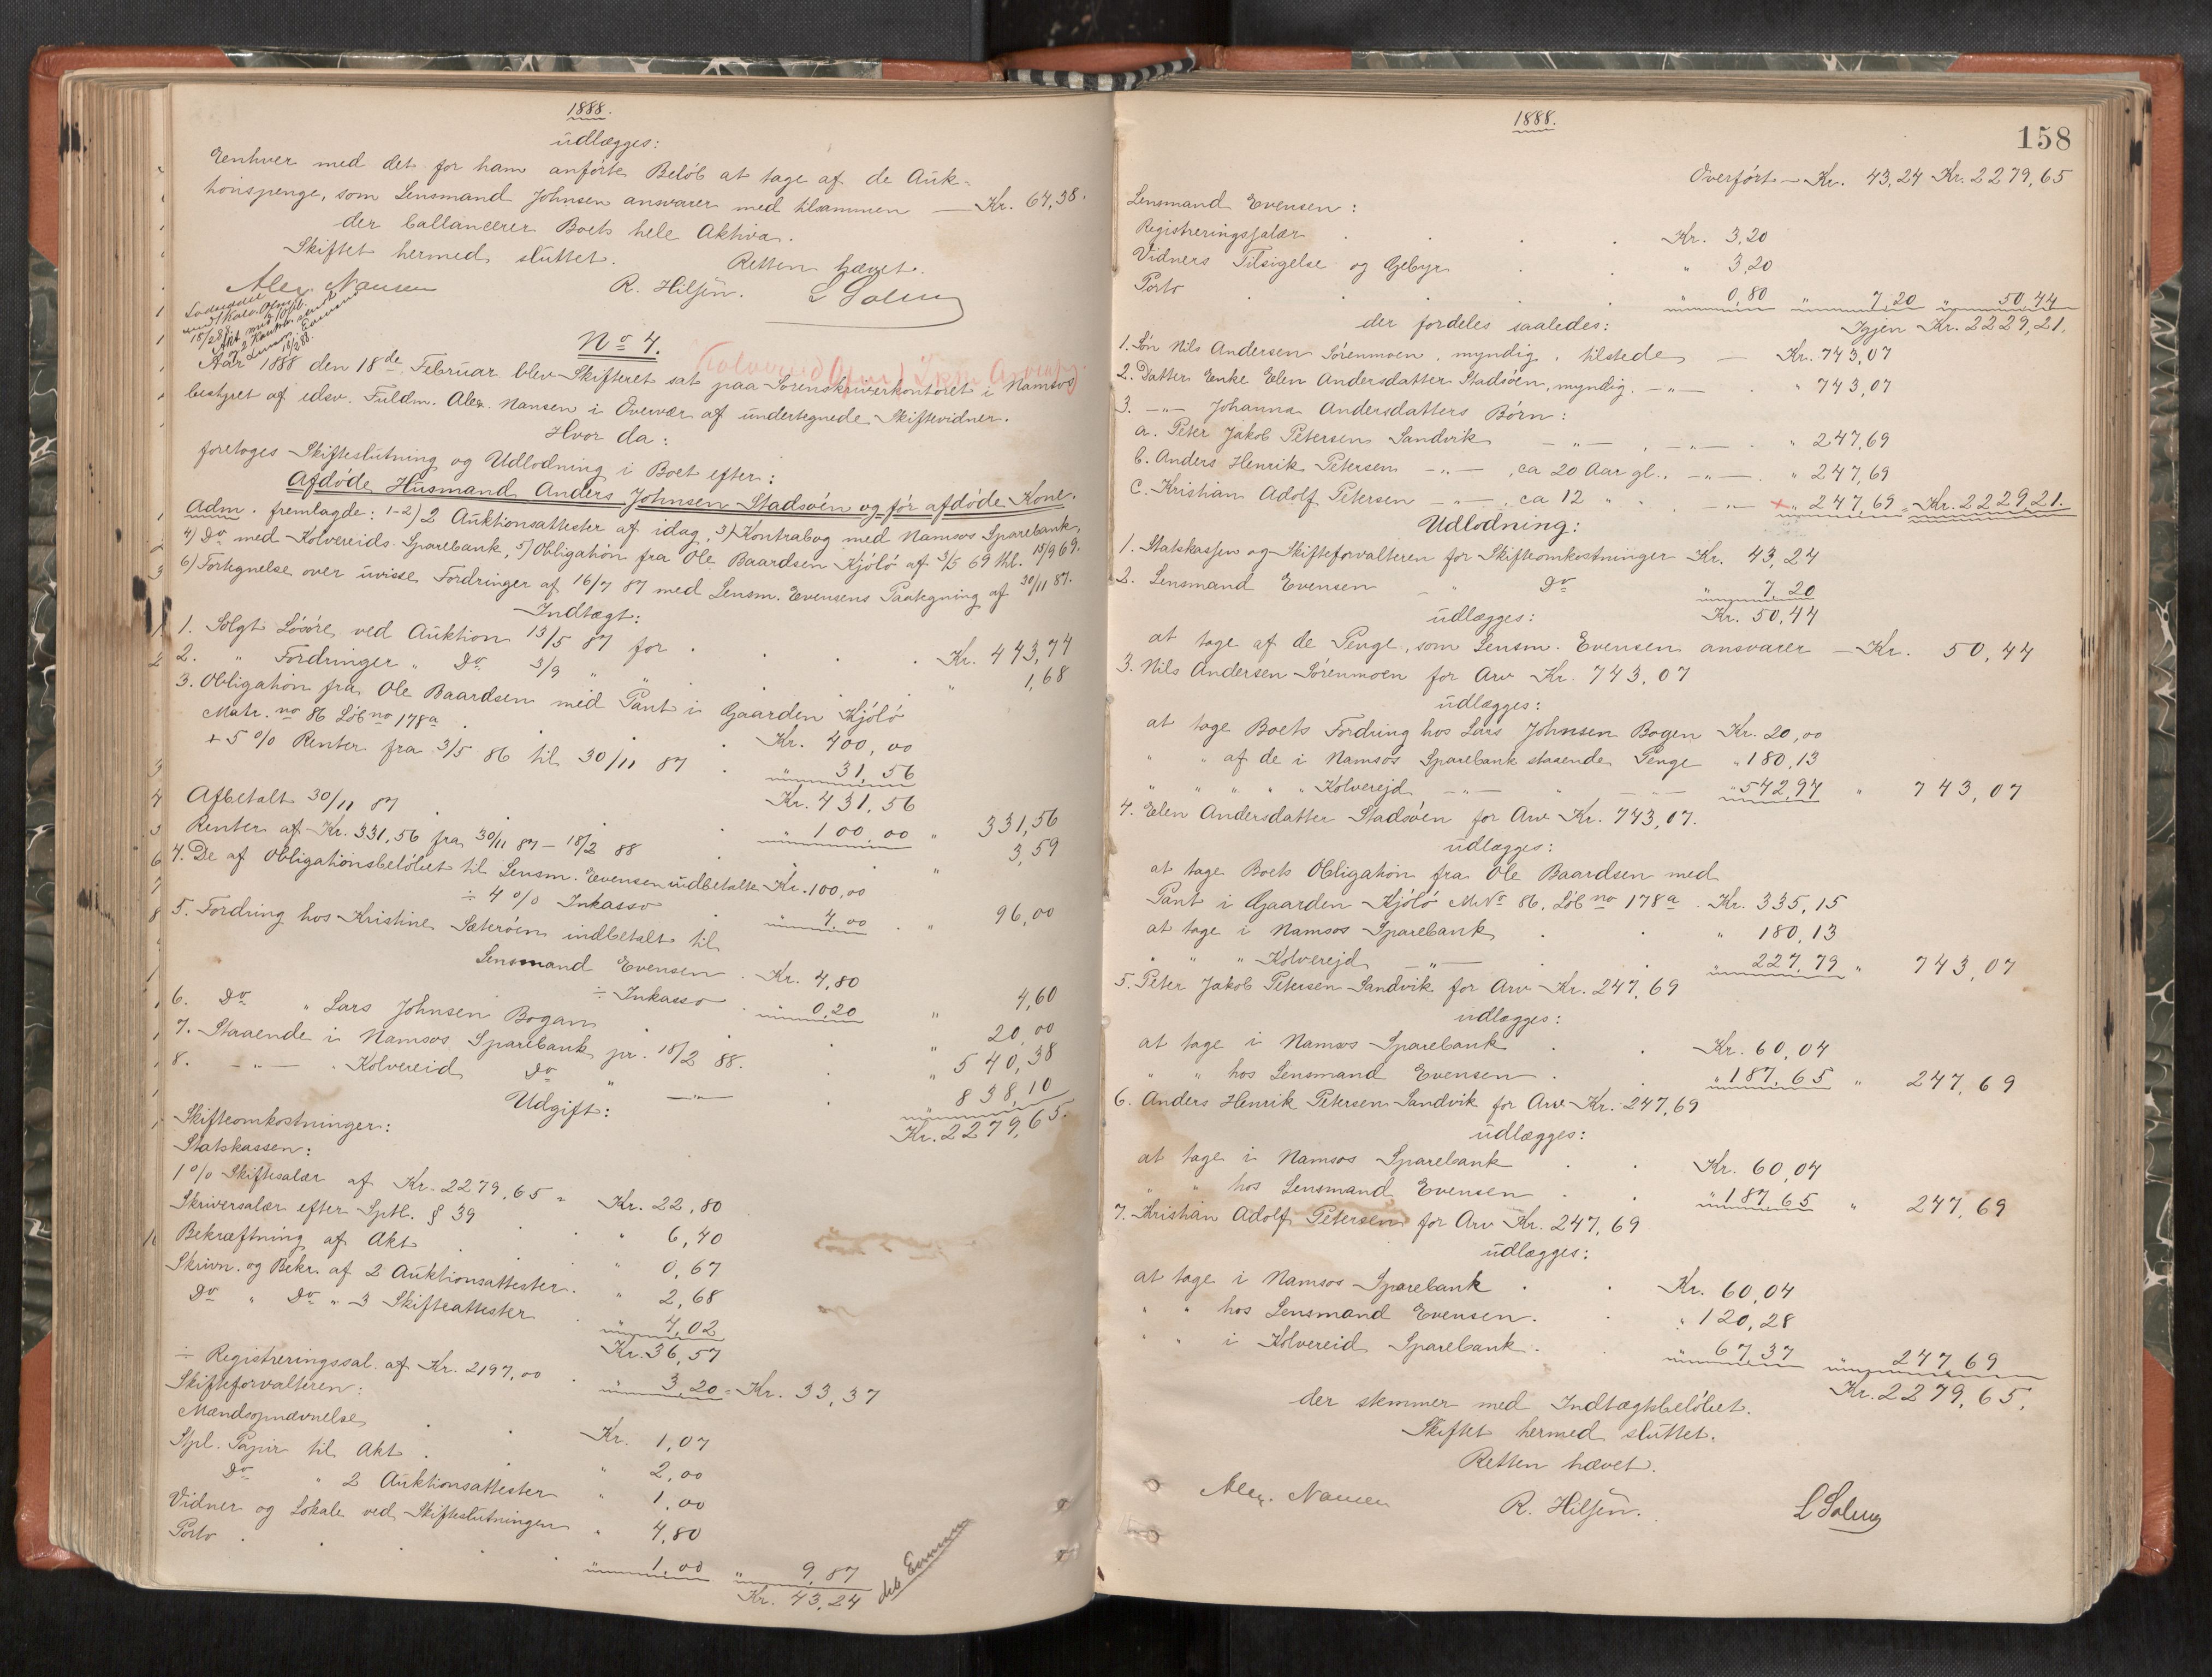 1888.
udlægges:
Enhver med det for ham anførte Beløb at tage af de Auk-
tionspenge, som Lensmand Johnsen ansvarer med tilsammen — Kr. 64,38.
der ballancerer Boets hele Aktiva.
Skiftet hermed sluttet. Retten hævet.
Alex. Nansen R. Hilsen. L Solem
No 4.
Aar 1888 den 18de Februar blev Skifteret sat paa Sorenskriverkontoret i Namsos
bestyret af edsv. Fuldm. Alex. Nansen i Overvær af undertegnede Skiftevidner.
Hvor da:
foretoges Skifteslutning og Udlodning i Boet efter:
Afdøde Husmand Anders Johnsen Stadsøen og før afdøde Kone.
Adm. fremlagde: 1-2) 2 Auktionsattester af idag, 3) Kontrabog med Namsos Sparebank,
4) Do med Kolvereids Sparebank, 5) Obligation fra Ole Baardsen Kjølø af 3/5 69 thl. 15/9 69.
6) Fortegnelse over uvisse Fordringer af 16/7 87 med Lensm. Evensens Paategning af 30/11 87.
Indtægt:
1. Solgt Løsøre ved Auktion 13/5 87 for . . . Kr. 443,74
2. " Fordringer " Do 3/9 " " . . . " 1,68
3. Obligation fra Ole Baardsen med Pant i Gaarden Kjølø
Matr. no 86 Løb no 178a . . Kr. 400,00
+ 5 % Renter fra 3/5 86 til 30/11 87 . " 31,56
Kr. 431,56
Afbetalt 30/11 87 . . " 100,00 " 331,56
Renter af Kr. 331,56 fra 30/11 87 - 18/2 88 . " 3,59
4. De af Obligationsbeløbet til Lensm. Evensen udbetalte Kr. 100,00
÷ 4 % Inkasso . " 4,00 . " 96,00
5. Fordring hos Kristine Sæterøen indbetalt til
Lensmand Evensen . Kr. 4,80
÷ Inkasso . " 0,20 " 4,60
6. Do " Lars Johnsen Bogan . . " 20,00
7. Staaende i Namsos Sparebank pr. 18/2 88. . " 540,38
8. -"- . Kolvereid Do " -"- . " 838,10
Kr. 2279,65.
Udgift:
Skifteomkostninger:
Statskassen:
1 % Skiftesalær af Kr. 2279,65 = Kr. 22,80
Skriversalær efter Sptl. § 39 . " 6,40
Bekræftning af Akt . " 0,67
Skrivn. og Bekr. af 2 Auktionsattester . " 2,68
Do " Do " 3 Skifteattester . " 4,02
Kr. 36,57
÷ Registreringssal. af Kr. 2197,00 . " 3,20 = Kr. 33,37
Skifteforvalteren:
Mandsopnævnelse . . Kr. 1,07
Stpl. Papir til Akt . . " 2,00
Do " 2 Auktionsattester " 1,00
Vidner og Lokale ved Skifteslutningen " 4,80
Porto . . . . " 1,00 " 9,87
Kr. 43,24
1888.
158
Overført — Kr. 43,24 Kr. 2279,65
Lensmand Evensen:
Registreringssalær . . . . Kr. 3,20
Vidners Tilsigelse og Gebyr . . " 3,20
Porto . . . . . " 0,80 " 7,20 " 50,44
der fordeles saaledes: Igjen Kr. 2229,21.
1. Søn Nils Andersen Sørenmoen, myndig, tilstede — Kr. 743,07
2. Datter Enke Elen Andersdatter Stadsøen, myndig. -"- . " 743,07
3. -"- Johanna Andersdatters Børn:
a. Peter Jakob Petersen Sandvik -"- , -"- . " 247,69
b. Anders Henrik Petersen -"- , ca 20 Aar gl., -"- . " 247,69
c. Kristian Adolf Petersen -"- , ca 12 " . -"- " 247,69 = Kr. 2229,21.
Udlodning:
1. Statskassen og Skifteforvalteren for Skifteomkostninger Kr. 43,24
2. Lensmand Evensen - " Do " 7,20
udlægges: Kr. 50,44
at tage af de Penge, som Lensm. Evensen ansvarer — Kr. 50,44
3. Nils Andersen Sørenmoen for Arv Kr. 743,07
udlægges:
at tage Boets Fordring hos Lars Johnsen Bogen Kr. 20,00
" " af de i Namsos Sparebank staaende Penge " 180,13
" " " " " Kolverejd -"- " -"- " 542,94 " 743,07
4. Elen Andersdatter Stadsøen for Arv Kr. 743,07.
udlægges:
at tage Boets Obligation fra Ole Baardsen med
Pant i Gaarden Kjølø M.No 86, Løb no 178a . Kr. 335,15
at tage i Namsos Sparebank . . " 180,13
" " " Kolverejd -"- . . " 227,79 " 743,07
5. Peter Jakob Petersen Sandvik for Arv Kr. 247,69
udlægges:
at tage i Namsos Sparebank . . Kr. 60,04
" " hos Lensmand Evensen . . " 187,65 " 247,69
6. Anders Henrik Petersen Sandvik for Arv Kr. 247,69
udlægges:
at tage i Namsos Sparebank . . Kr. 60,04
" " hos Lensmand Evensen . . " 187,65 " 247,69
7. Kristian Adolf Petersen for Arv Kr. 247,69
udlægges:
at tage i Namsos Sparebank . . Kr. 60,04
" " hos Lensmand Evensen . . " 120,28
" " i Kolvereid Sparebank . . " 67,37 " 247,69
Kr. 2279,65.
der stemmer med Indtægtsbeløbet.
Skiftet hermed sluttet.
Retten hævet.
Alex. Nansen R. Hilsen. L Solem